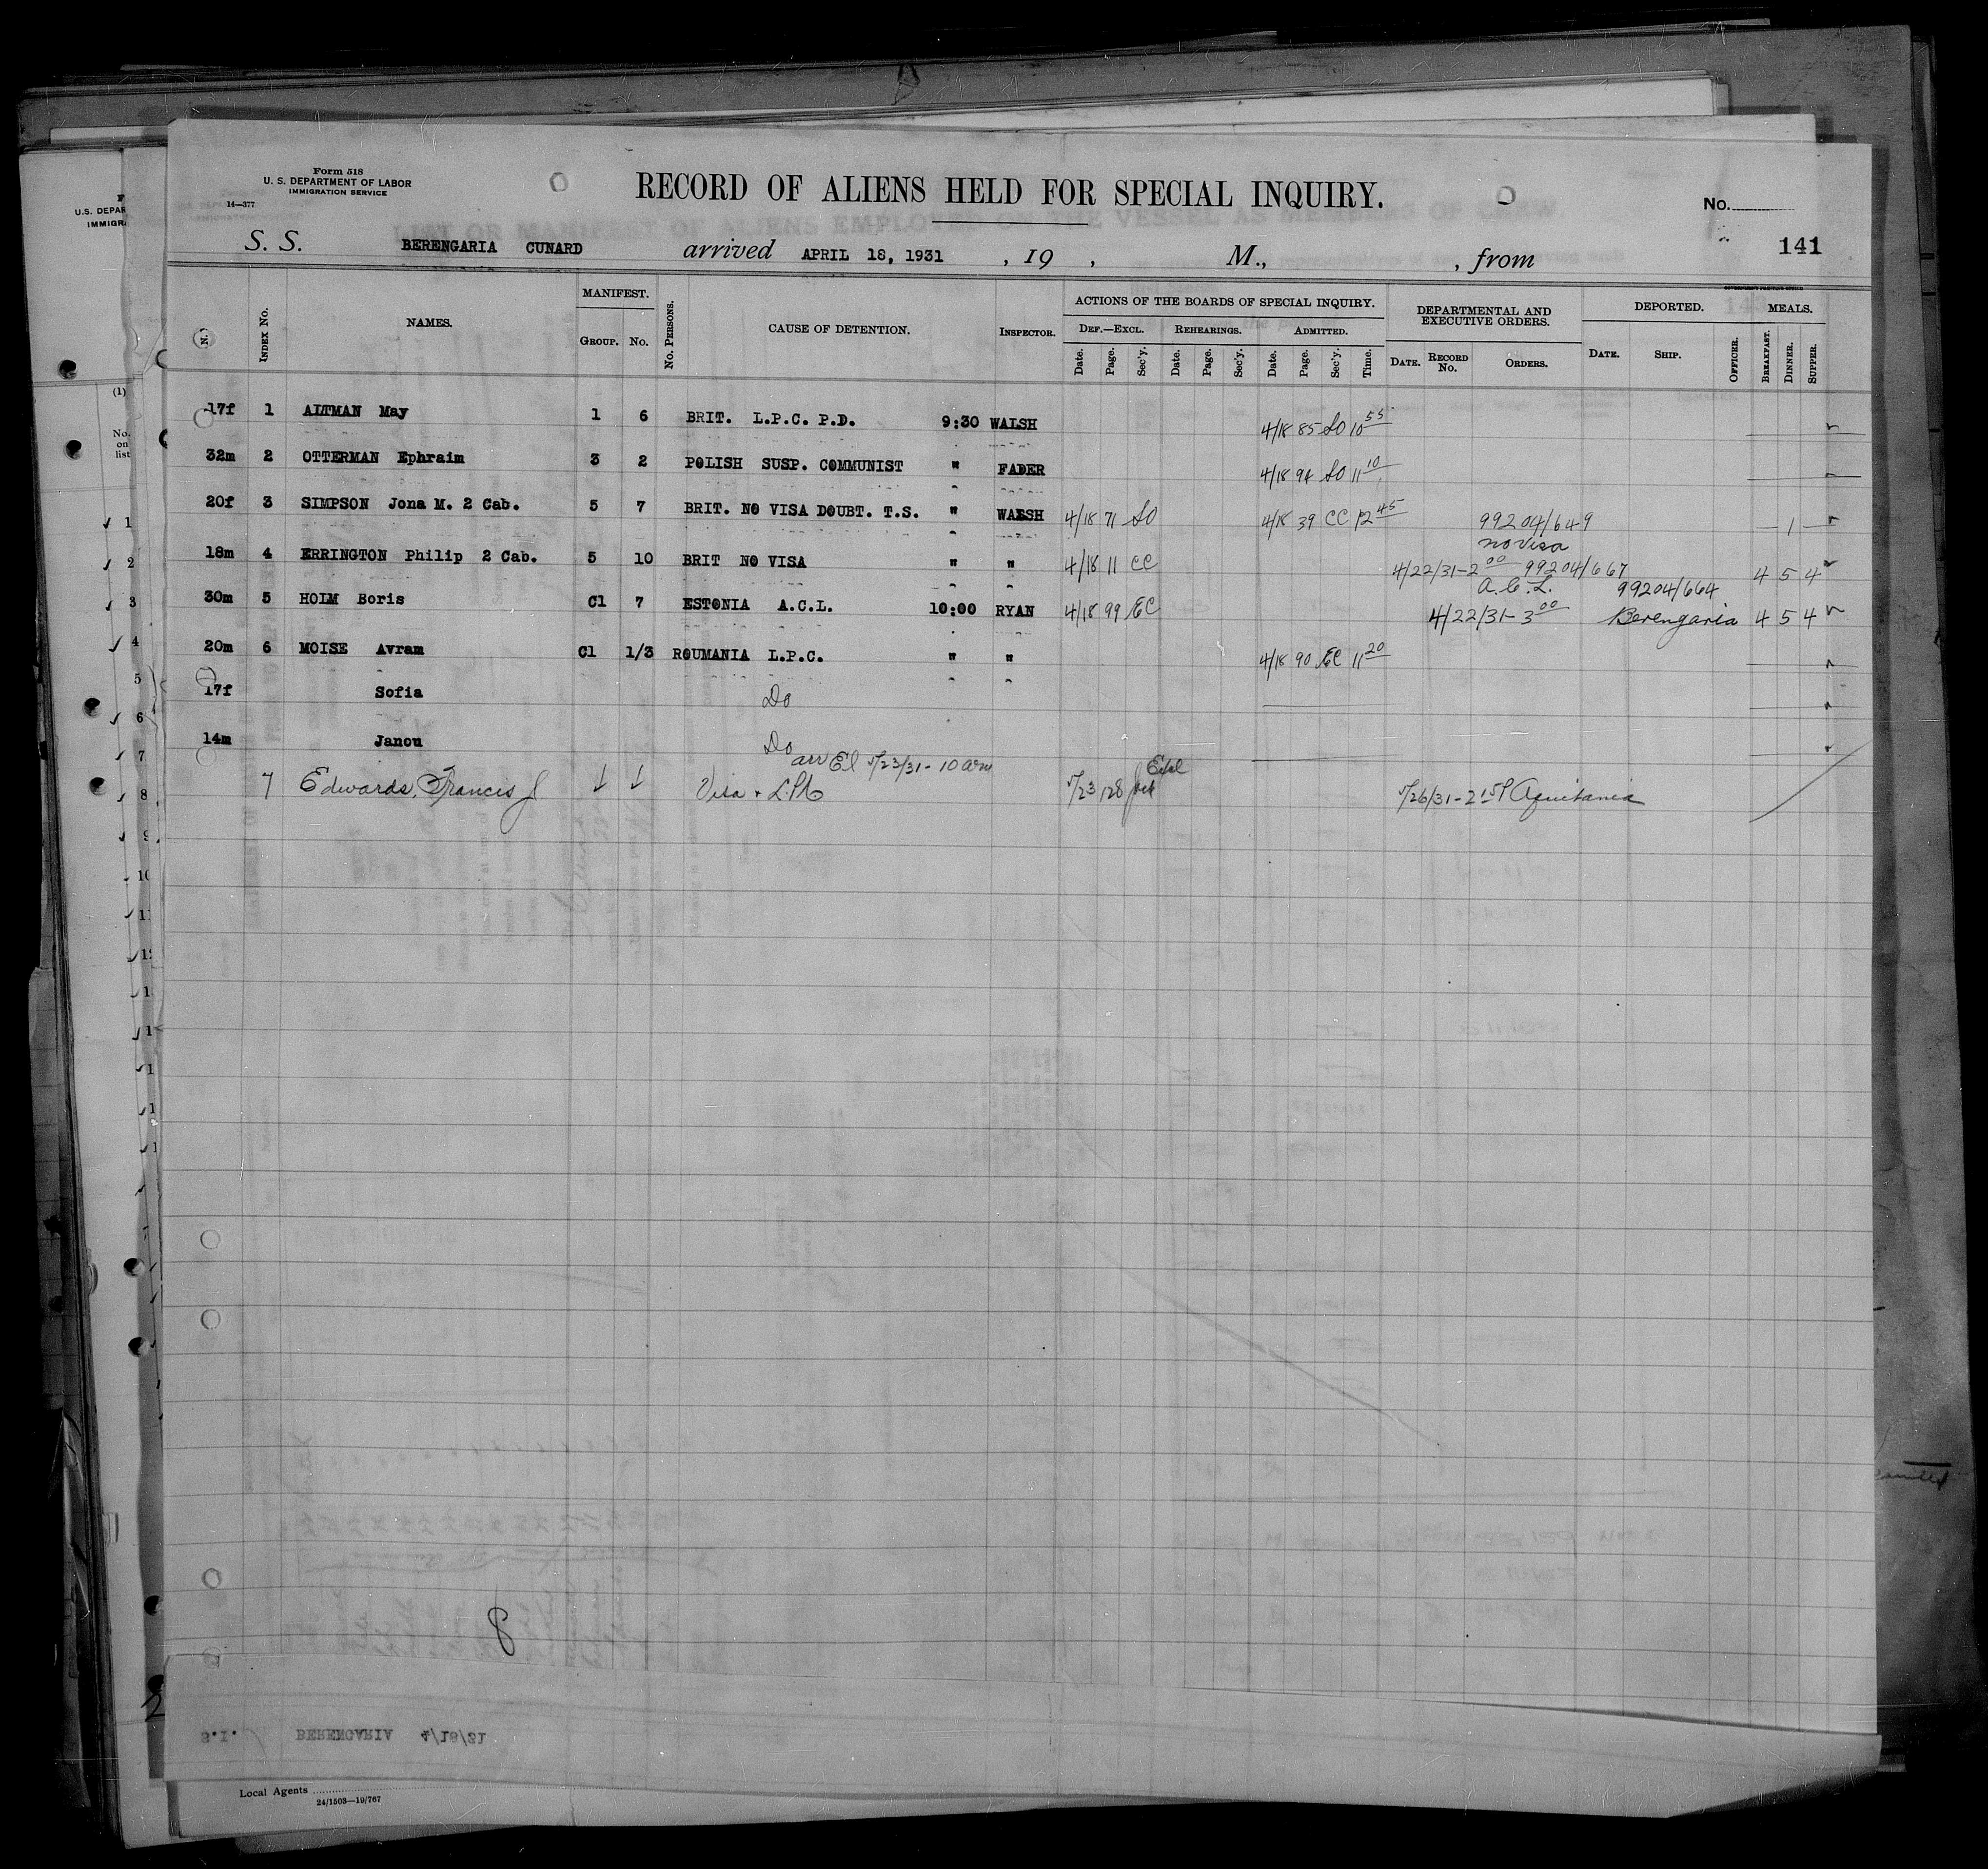 Form 518
U. S. DEPARTMENT OF LABOR
IMMIGRATION SERVICE
14—377
RECORD OF ALIENS HELD FOR SPECIAL INQUIRY.
No.
141
S. S. BERENGARIA CUNARD arrived APRIL 18, 1931 , 19 , M., , from
INDEX No. NAMES. MANIFEST. GROUP. No. No. PERSONS. CAUSE OF DETENTION. INSPECTOR. ACTIONS OF THE BOARDS OF SPECIAL INQUIRY. DEPARTMENTAL AND EXECUTIVE ORDERS. DEPORTED. MEALS.
DEF.—EXCL. REHEARINGS. ADMITTED.
Date. Page. Sec'y. Date. Page. Sec'y. Date. Page. Sec'y. Time. DATE. RECORD No. ORDERS. DATE. SHIP. OFFICER. BREAKFAST. DINNER. SUPPER.
17f 1 ALTMAN May 1 6 BRIT. L.P.C. P.D. 9:30 WALSH 4/18 85 SO 10 55
32m 2 OTTERMAN Ephraim 3 2 POLISH SUSP. COMMUNIST " FADER 4/18 94 SO 11 10
20f 3 SIMPSON Jona M. 2 Cab. 5 7 BRIT. NO VISA DOUBT. T.S. " WALSH 4/18 71 SO 4/18 39 CC 12 45 99204/649 1
no visa
18m 4 ERRINGTON Philip 2 Cab. 5 10 BRIT NO VISA " " 4/18 11 CC 4/22/31-2 00 99204/667 4 5 4
A.C.L. 99204/664
30m 5 HOLM Boris Cl 7 ESTONIA A.C.L. 10:00 RYAN 4/18 99 EC 4/22/31-3 00 Berengaria 4 5 4
20m 6 MOISE Avram Cl 1/3 ROUMANIA L.P.C. " " 4/18 90 EC 11 20
17f Sofia Do
14m Janou Do
arr EI 5/23/31 - 10 am
7 Edwards, Francis J Visa + LPC 5/23 128 Excl 5/26/31 - 2 15 P Aquitania
8
S.I. BERENGARIA 4/18/31
Local Agents
24/1503—19/767
U.S. DEPAR
IMMIGRA
(1)
No. on list
1
2
3
4
5
6
7
8
9
10
11